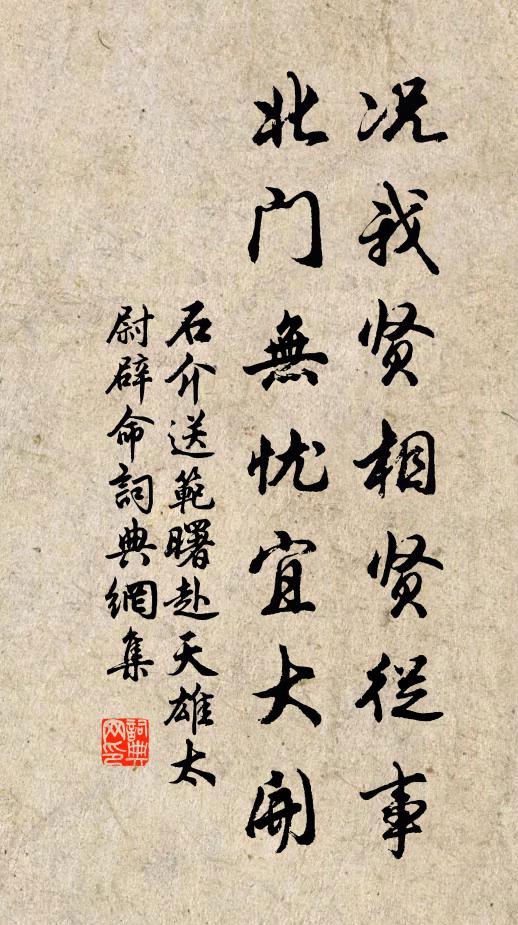 况我贤相贤从事
北门無忧宜大開
石介送範曙赴天雄太
尉辟命詞典網集
詞典網印